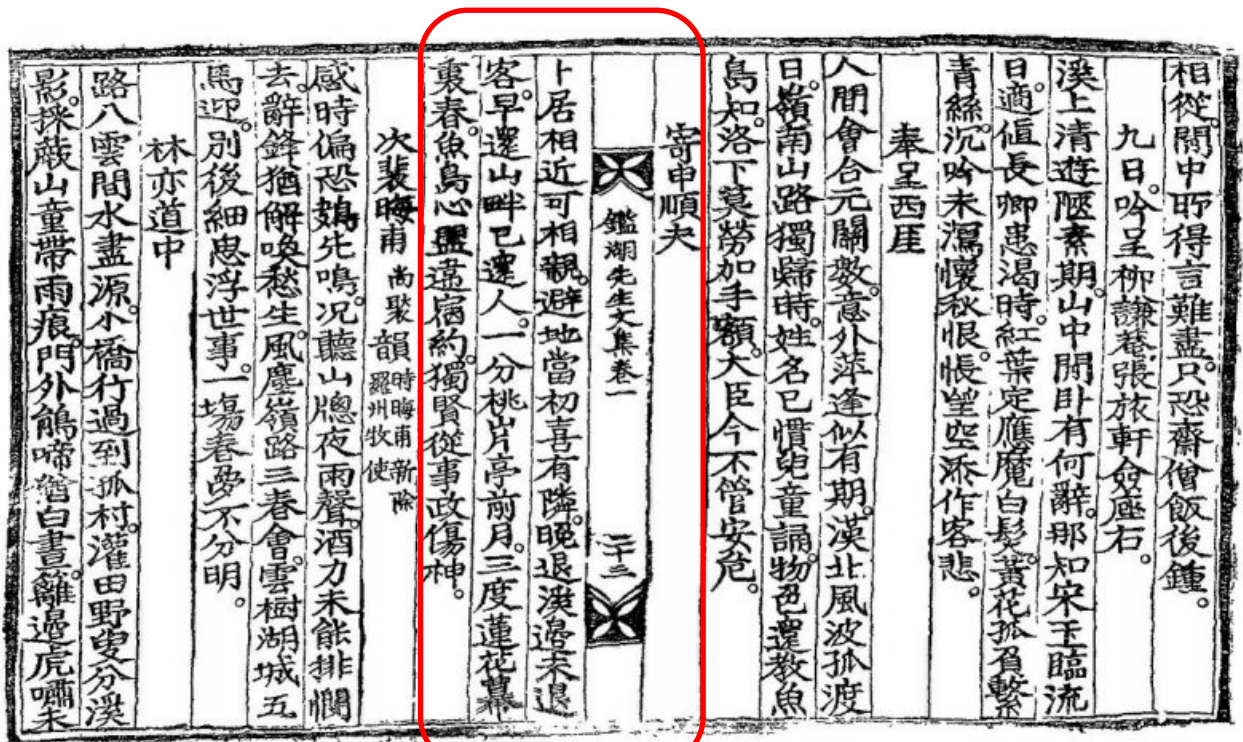 相從。關中所得言難盡。只恐齋僧飯後鍾。
九日。吟呈柳謙菴,張旅軒僉座右。
溪上清遊陻素期。山中閒卧有何辭。那知宋玉臨流
日。適値長卿患渴時。紅葉定應魔白髮。黃花孤負繫
靑絲。沉吟未瀉懷秋恨。悵望空添作客悲。
奉呈西厓
人間會合元關數。意外萍逢似有期。漢北風波孤渡
日。嶺南山路獨歸時。姓名已慣兒童誦。物色還敎魚
鳥知。洛下莫勞加手額。大臣今不管安危。
寄申順夫
鑑湖先生文集卷一
二十二
卜居相近可相親。避地當初喜有隣。晩退漢邊未退
客。早還山畔已還人。一分桃片亭前月。三度蓮花幕
裏春。魚鳥忘盟違宿約。獨賢從事政傷神。
次裴晦甫 尙絅 韻 時晦甫新除羅州牧使
感時偏恐鵊先鳴。况聽山牕夜雨聲。酒力未能排悶
去。辭鋒猶解喚愁生。風塵嶺路三春會。雲樹湖城五
馬迎。別後細思浮世事。一塲春夢不分明。
林亦道中
路入雲間水盡源。小橋行過到孤村。灌田野叟分溪
影。採蕨山童帶雨痕。門外鵑啼猶白晝。籬邊虎嘯未